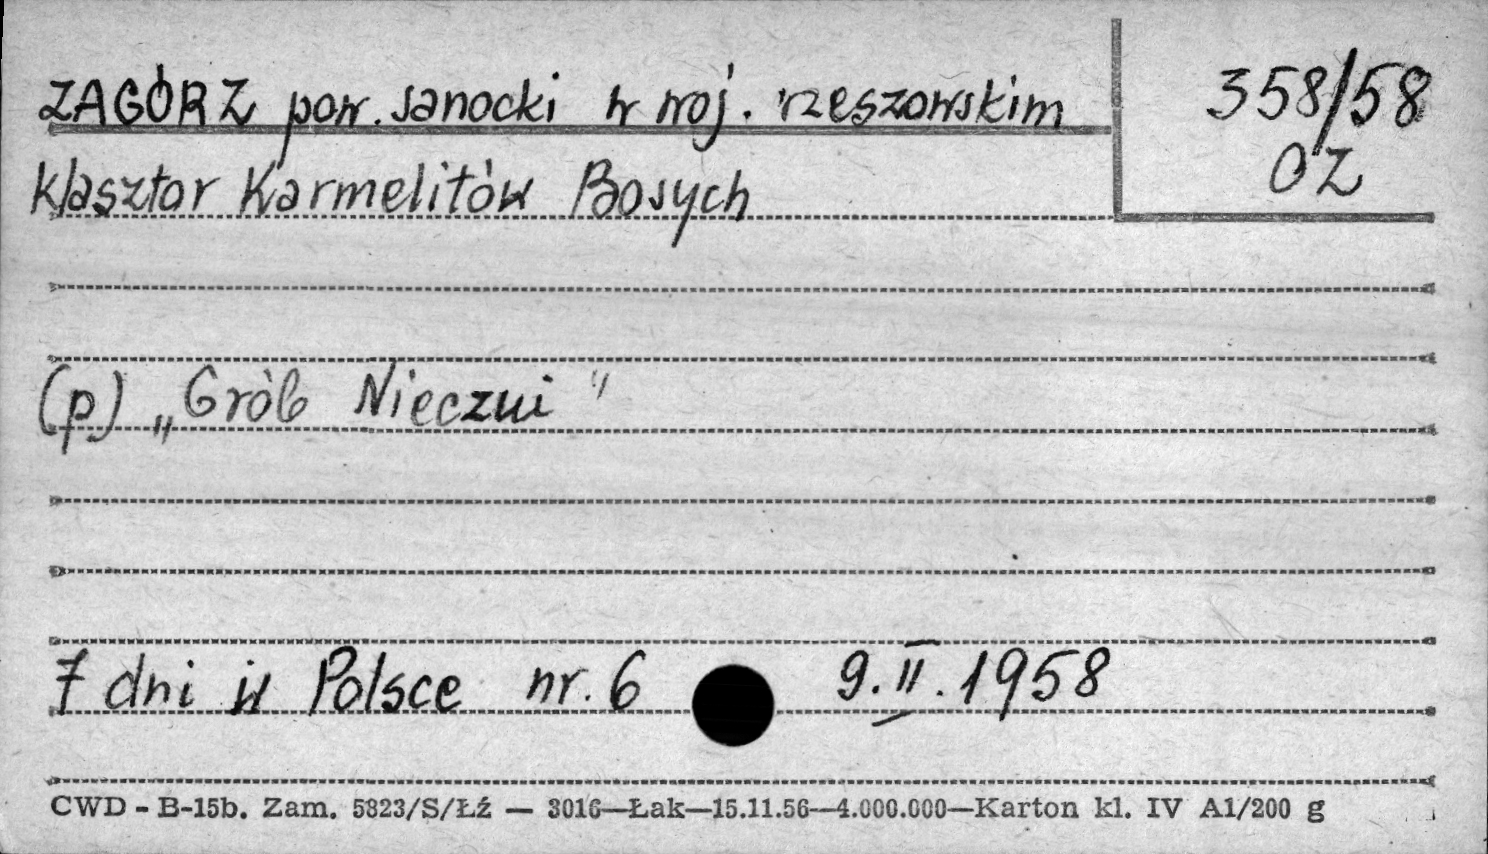 ZAGÓRZ pow. sanocki w woj. rzeszowskim
358/58
OZ
klasztor Karmelitów Bosych
(p) „Grób Nieczui"
7 dni w Polsce nr. 6 9.II.1958
CWD - B-15b. Zam. 5823/S/Łź — 3016—Łak—15.11.56—4.000.000—Karton kl. IV A1/200 g